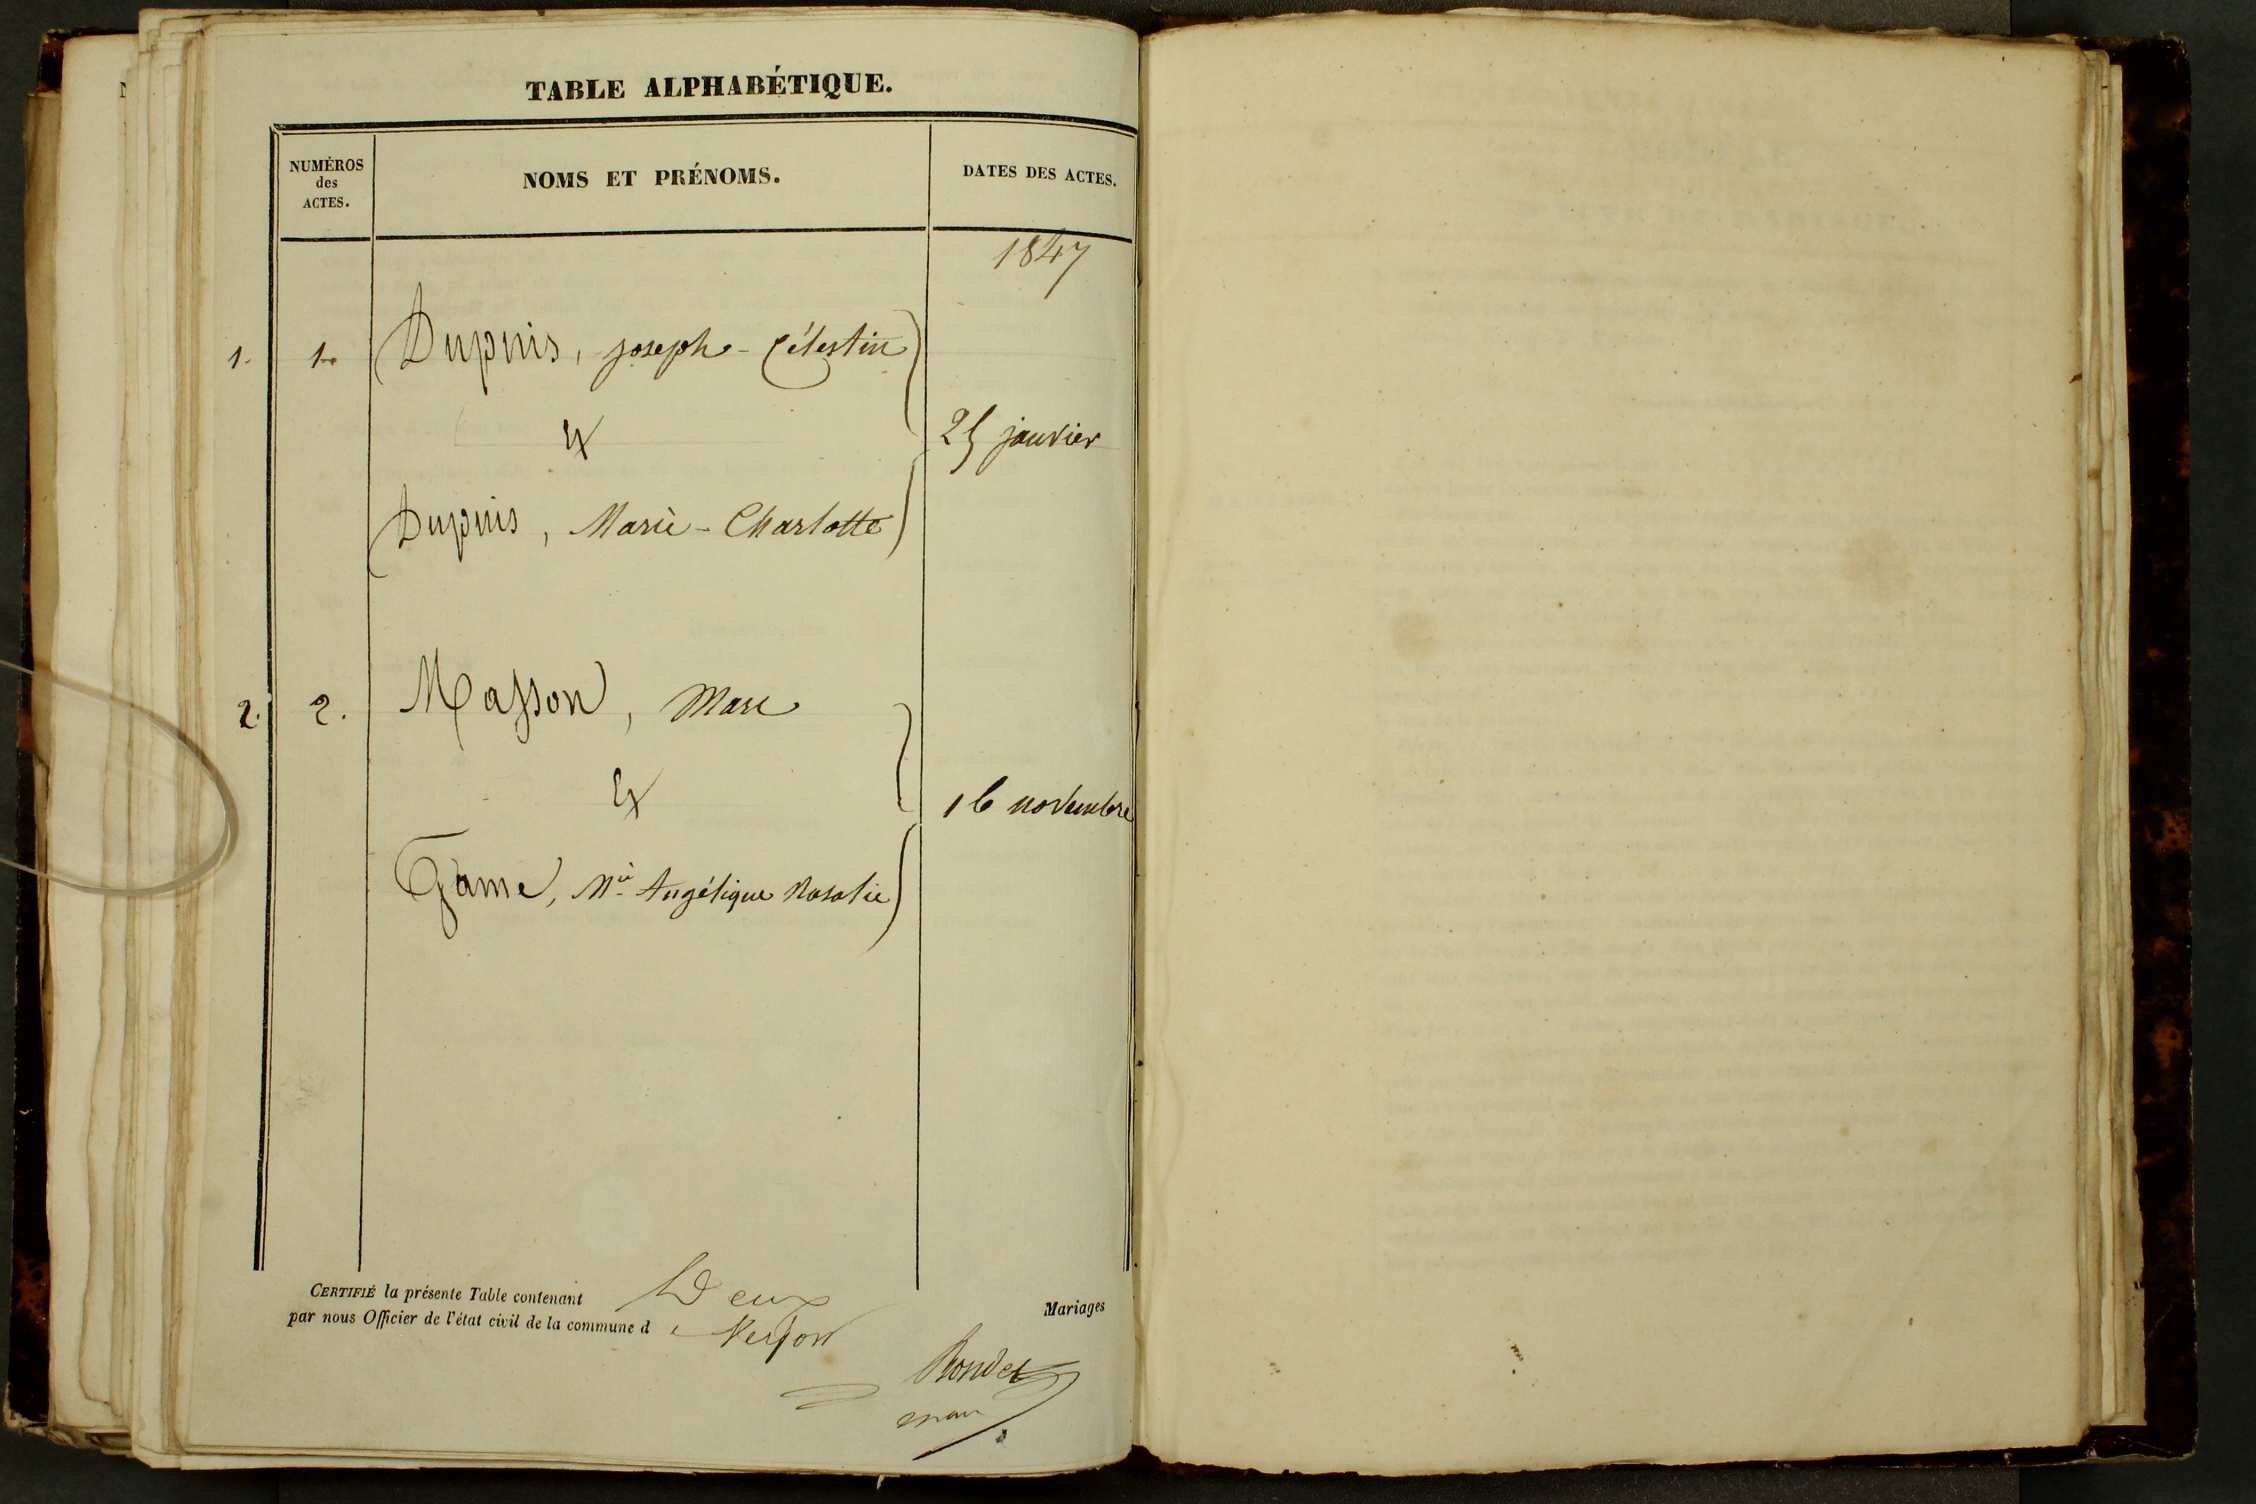 TABLE ALPHABÉTIQUE.
NUMÉROS
des
ACTES.
NOMS ET PRÉNOMS.
DATES DES ACTES.
1847
1. 1. Dupuis, Joseph-Célestin
Et
25 janvier
Dupuis, Marie-Charlotte
2. 2. Masson, Marc
Et
16 novembre
Game, Mie Angélique Rosalie
CERTIFIÉ la présente Table contenant Deux Mariages
par nous Officier de l'état civil de la commune d
Rondet